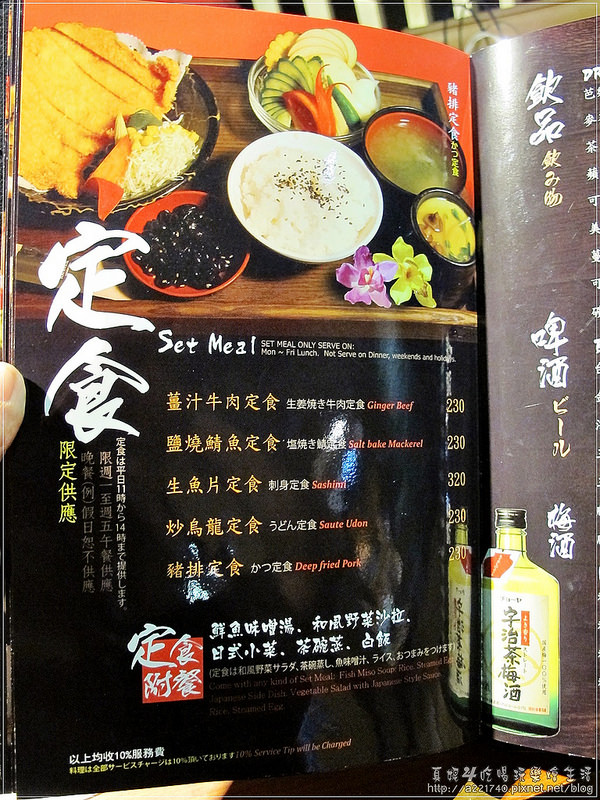 豬排定食かつ定食
定食
Set Meal
SET MEAL ONLY SERVE ON:
Mon ~ Fri Lunch. Not Serve on Dinner, weekends and holidays.
限定供應
定食は平日11時から14時まで提供します。
限週一至週五午餐供應
晚餐(例)假日恕不供應
薑汁牛肉定食 生姜焼き牛肉定食 Ginger Beef 230
鹽燒鯖魚定食 塩焼き鯖定食 Salt bake Mackerel 230
生魚片定食 刺身定食 Sashimi 320
炒烏龍定食 うどん定食 Saute Udon 230
豬排定食 かつ定食 Deep fried Pork 230
定食附餐
鮮魚味噌湯、和風野菜沙拉、
日式小菜、茶碗蒸、白飯
(定食は和風野菜サラダ、茶碗蒸し、魚味噌汁、ライス、おつまみをつけます
Come with any kind of Set Meal: Fish Miso Soup, Rice, Steamed Egg
Japanese Side Dish, Vegetable Salad with Japanese Style Sauce,
Rice, Steamed Egg.
以上均收10%服務費
料理は全部サービスチャージは10%頂いております 10% Service Tip will be Charged
飲品 飲み物
啤酒 ビール
梅酒
宇治茶梅酒
http://a221740.pixnet.net/blog